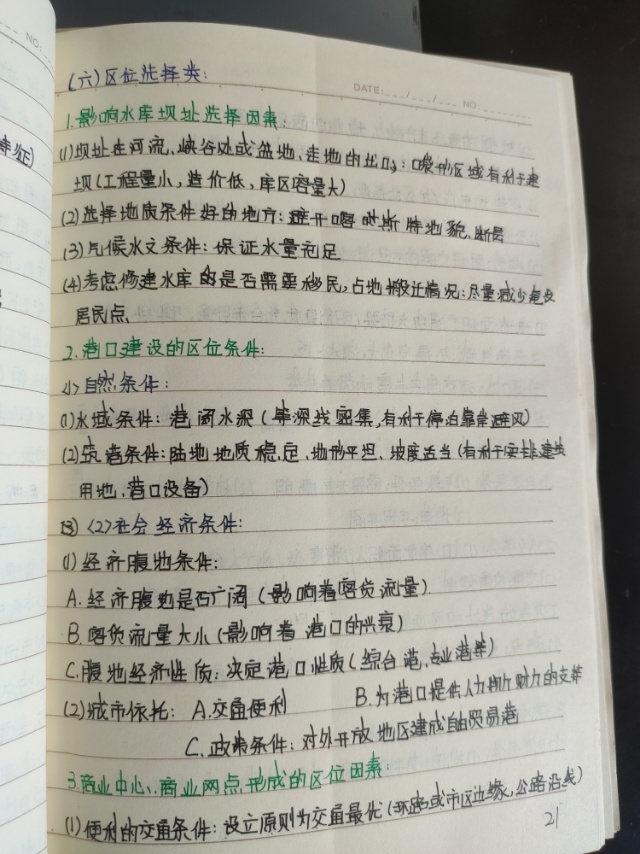 NO:
(六)区位选择类:
DATE:___/___/___ NO:
1.影响水库坝址选择因素:
(1)坝址在河流、峡谷处或盆地、洼地的出口:喉部区域有利于建
坝(工程量小,造价低,库区容量大)
(2)选择地质条件好的地方:避开喀斯特地貌、断层
(3)气候水文条件:保证水量充足
(4)考虑修建水库的是否需要移民,占地搬迁情况:尽量减少
居民点
2.港口建设的区位条件:
<1>自然条件:
(1)水域条件:港阔水深(等深线密集,有利于停泊靠岸避风)
(2)筑港条件:陆地地质稳定、地形平坦、坡度适当(有利于安排建筑
用地、港口设备)
<2>社会经济条件:
(1)经济腹地条件:
A.经济腹地是否广阔(影响着客货流量)
B.客货流量大小(影响着港口的兴衰)
C.腹地经济性质:决定港口性质(综合港、专业港等)
(2)城市依托: A.交通便利 B.为港口提供人力物力财力的支撑
C.政策条件:对外开放地区建成自由贸易港
3.商业中心、商业网点形成的区位因素:
(1)便利的交通条件:设立原则为交通最优(环路或市区边缘,公路沿线)
21